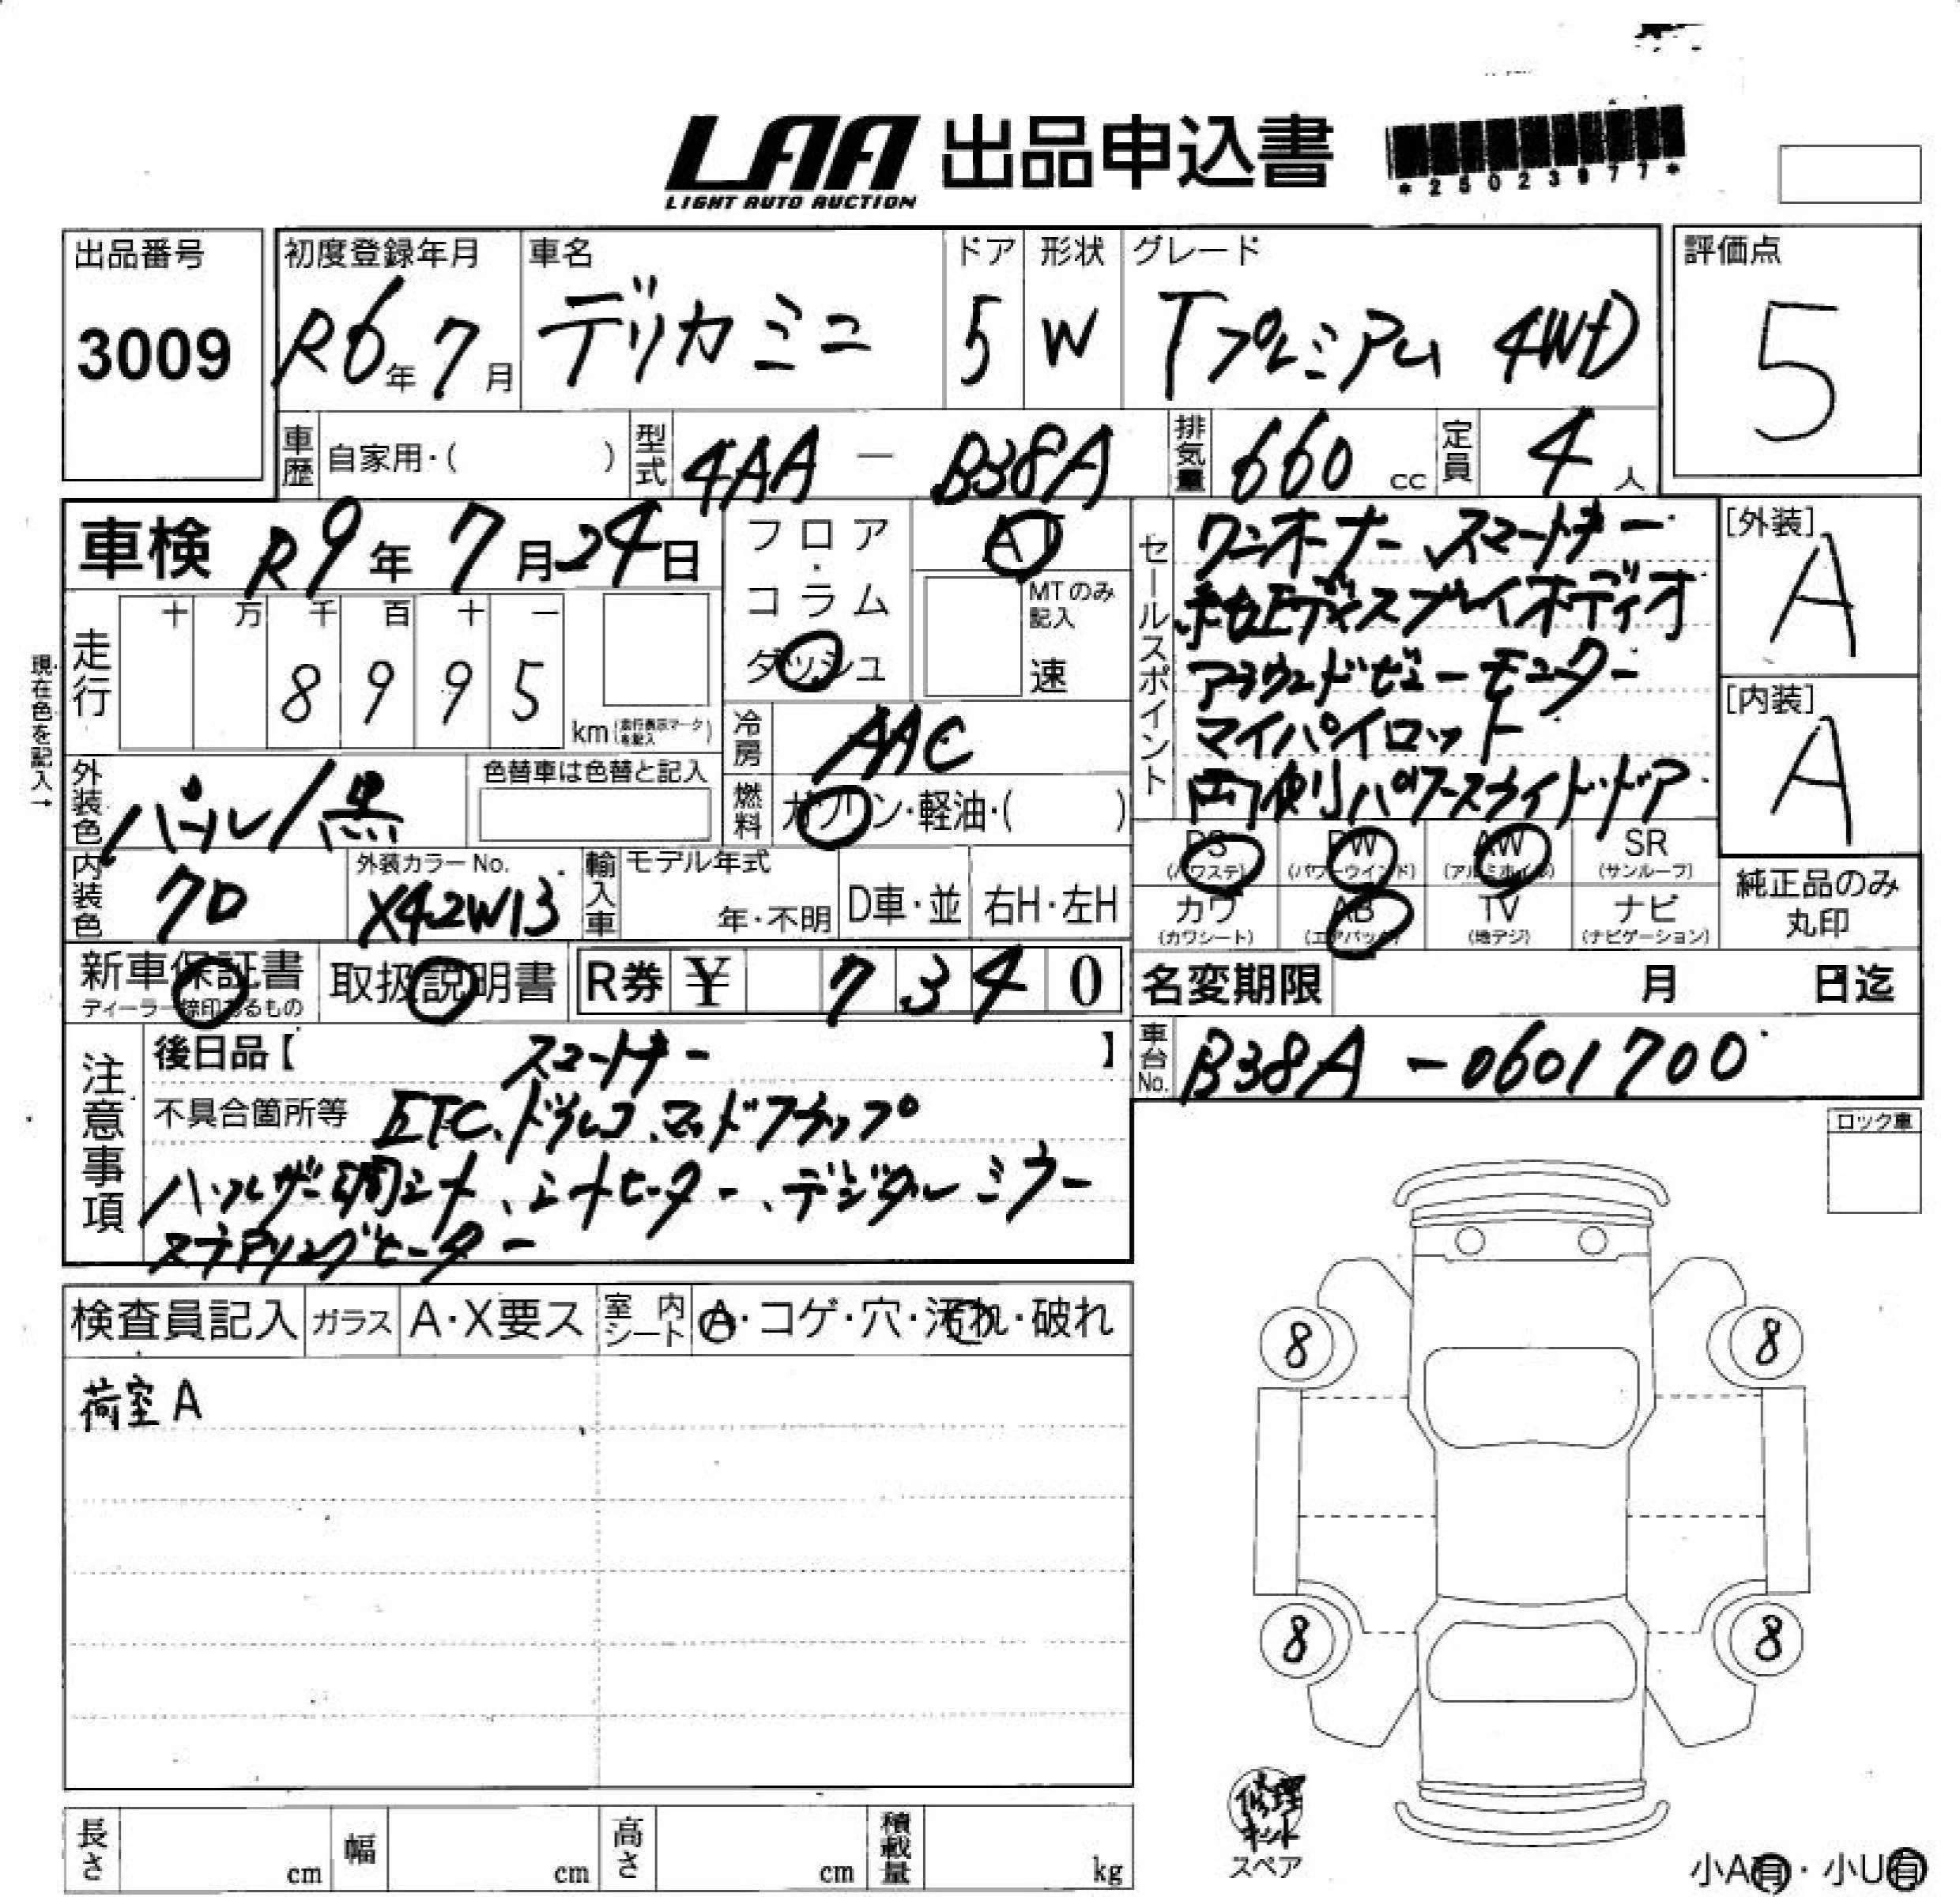 LAA 出品申込書
LIGHT AUTO AUCTION
*25023977*
出品番号
3009
初度登録年月
R6年7月
車名
デリカミニ
ドア
5
形状
W
グレード
Tプレミアム 4WD
評価点
5
車歴
自家用・( )
型式
4AA - B38A
排気量
660 cc
定員
4人
車検 R9年7月24日
フロア・コラム
ダッシュ
AT
MTのみ記入
速
セールスポイント
ワンオーナー スマートキー
純正ディスプレイオーディオ
アラウンドビューモニター
マイパイロット
両側パワースライドドア
[外装]
A
[内装]
A
現在色を記入→
走行
十 万 千 百 十 一
8 9 9 5
km (走行表示マークを記入)
冷房
AAC
燃料
ガソリン・軽油・( )
外装色
パール/黒
色替車は色替と記入
内装色
クロ
外装カラーNo.
X42W13
輸入車
モデル年式
年・不明
D車・並
右H・左H
PS (パワステ)
PW (パワーウインド)
AW (アルミホイル)
SR (サンルーフ)
カワ (カワシート)
AB (エアバッグ)
TV (地デジ)
ナビ (ナビゲーション)
純正品のみ
丸印
新車保証書
ディーラー捺印あるもの
取扱説明書
R券 ¥ 7 3 4 0
名変期限 月 日迄
車台No.
B38A-0601700
注意事項
後日品【 スマートキー 】
不具合箇所等 ETC、ドラレコ、マッドフラップ
ハーフレザー調シート、シートヒーター、デジタルミラー
ステアリングヒーター
ロック車
検査員記入
ガラス
A・X要ス
室内シート
A・コゲ・穴・汚れ・破れ
荷室 A
8
8
8
8
修理
キット
スペア
長さ cm
幅 cm
高さ cm
積載量 kg
小A有・小U有